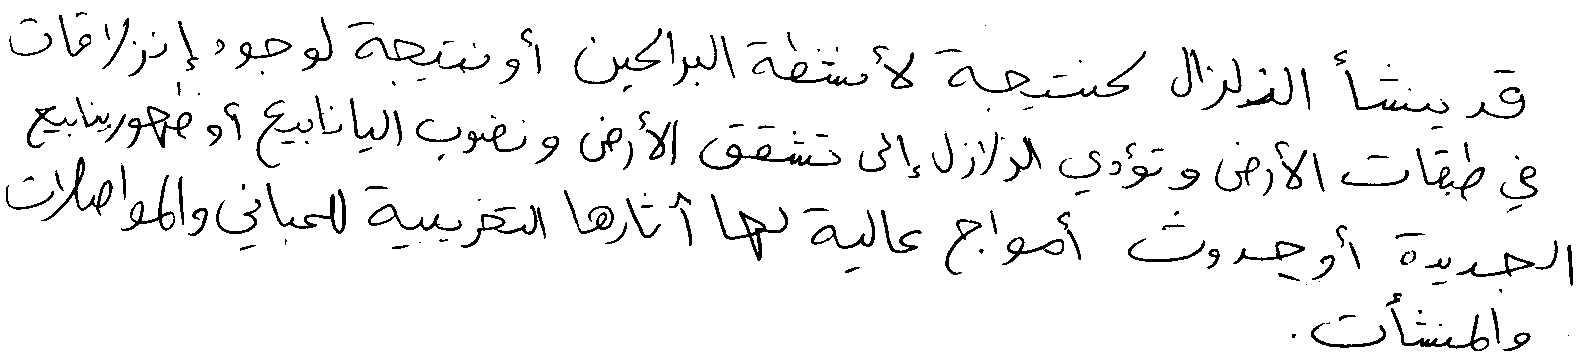 قد ينشأ الزلزال كنتيجة لأنشطة البراكين أو نتيجة لوجود إنزلاقات
في طبقات الأرض وتؤدي الزلازل إلى تشقق الأرض ونضوب اليانابيع أو ظهور ينابيع
الجديدة أو حدوث أمواج عالية لها آثارها التخريبية للمباني والمواصلات
والمنشأت.